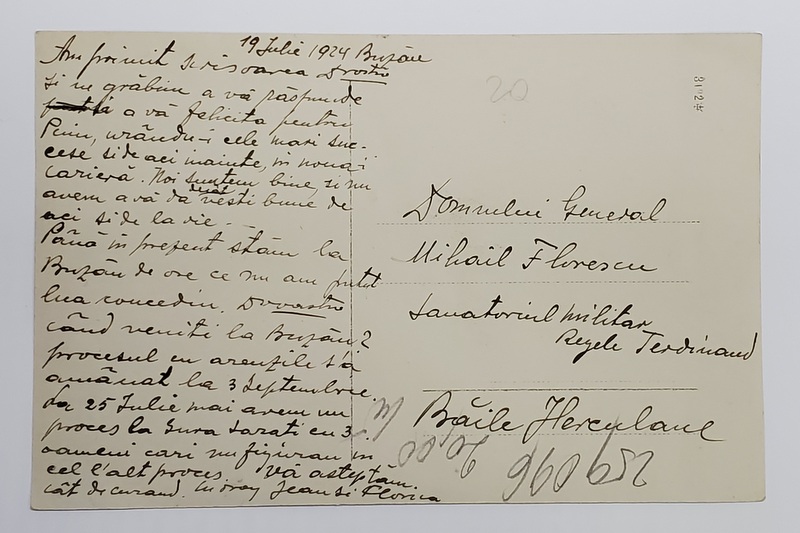 19 Iulie 1924 Buzău
Am primit scrisoarea Dvostră
și ne grăbim a vă răspunde
a vă felicita pentru
urându-i cele mai suc-
cese si de aci inainte, in noua-i
carieră. Noi suntem bine, si nu
avem a vă da decât vesti bune de
aci si de la vie.
Până in prezent stăm la
Buzău de ore ce nu am putut
lua concediu. Dvoastră
când veniti la Buzău?
procesul cu arenzile s'a
amânat la 3 Septembrie.
La 25 Iulie mai avem un
proces la Gura Sarati cu 3
oameni cari nu figurau in
cel l'alt proces. Vă asteptăm
cât de curand. Jean si Florica
20
Domnului General
Mihail Florescu
Sanatoriul Militar
Regele Ferdinand
Băile Herculane